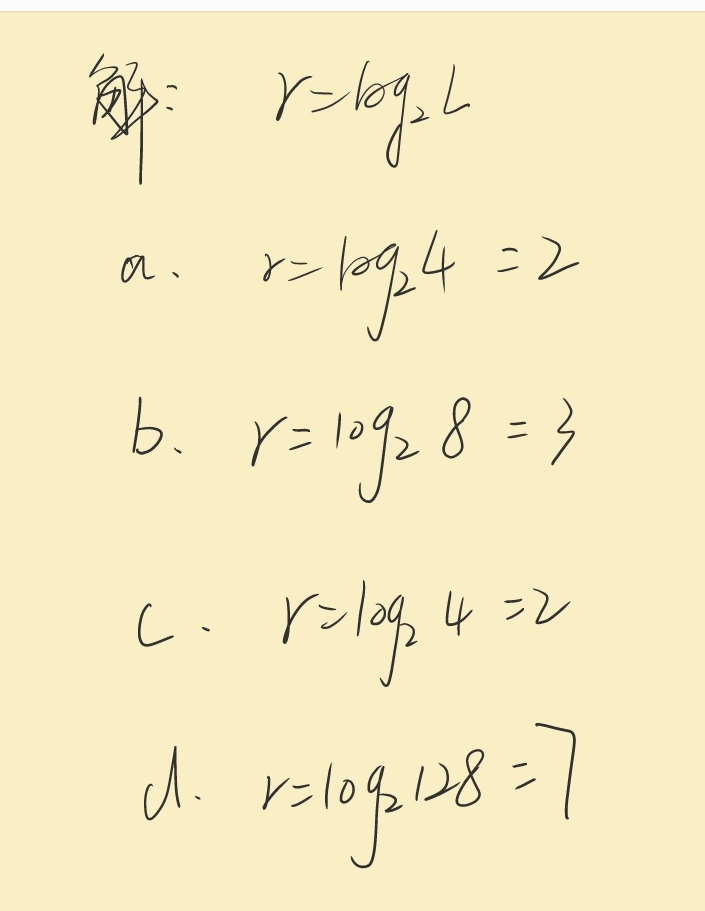 解: r=log₂L
a. r=log₂4 =2
b. r=log₂8 =3
c. r=log₂4 =2
d. r=log₂128 =7